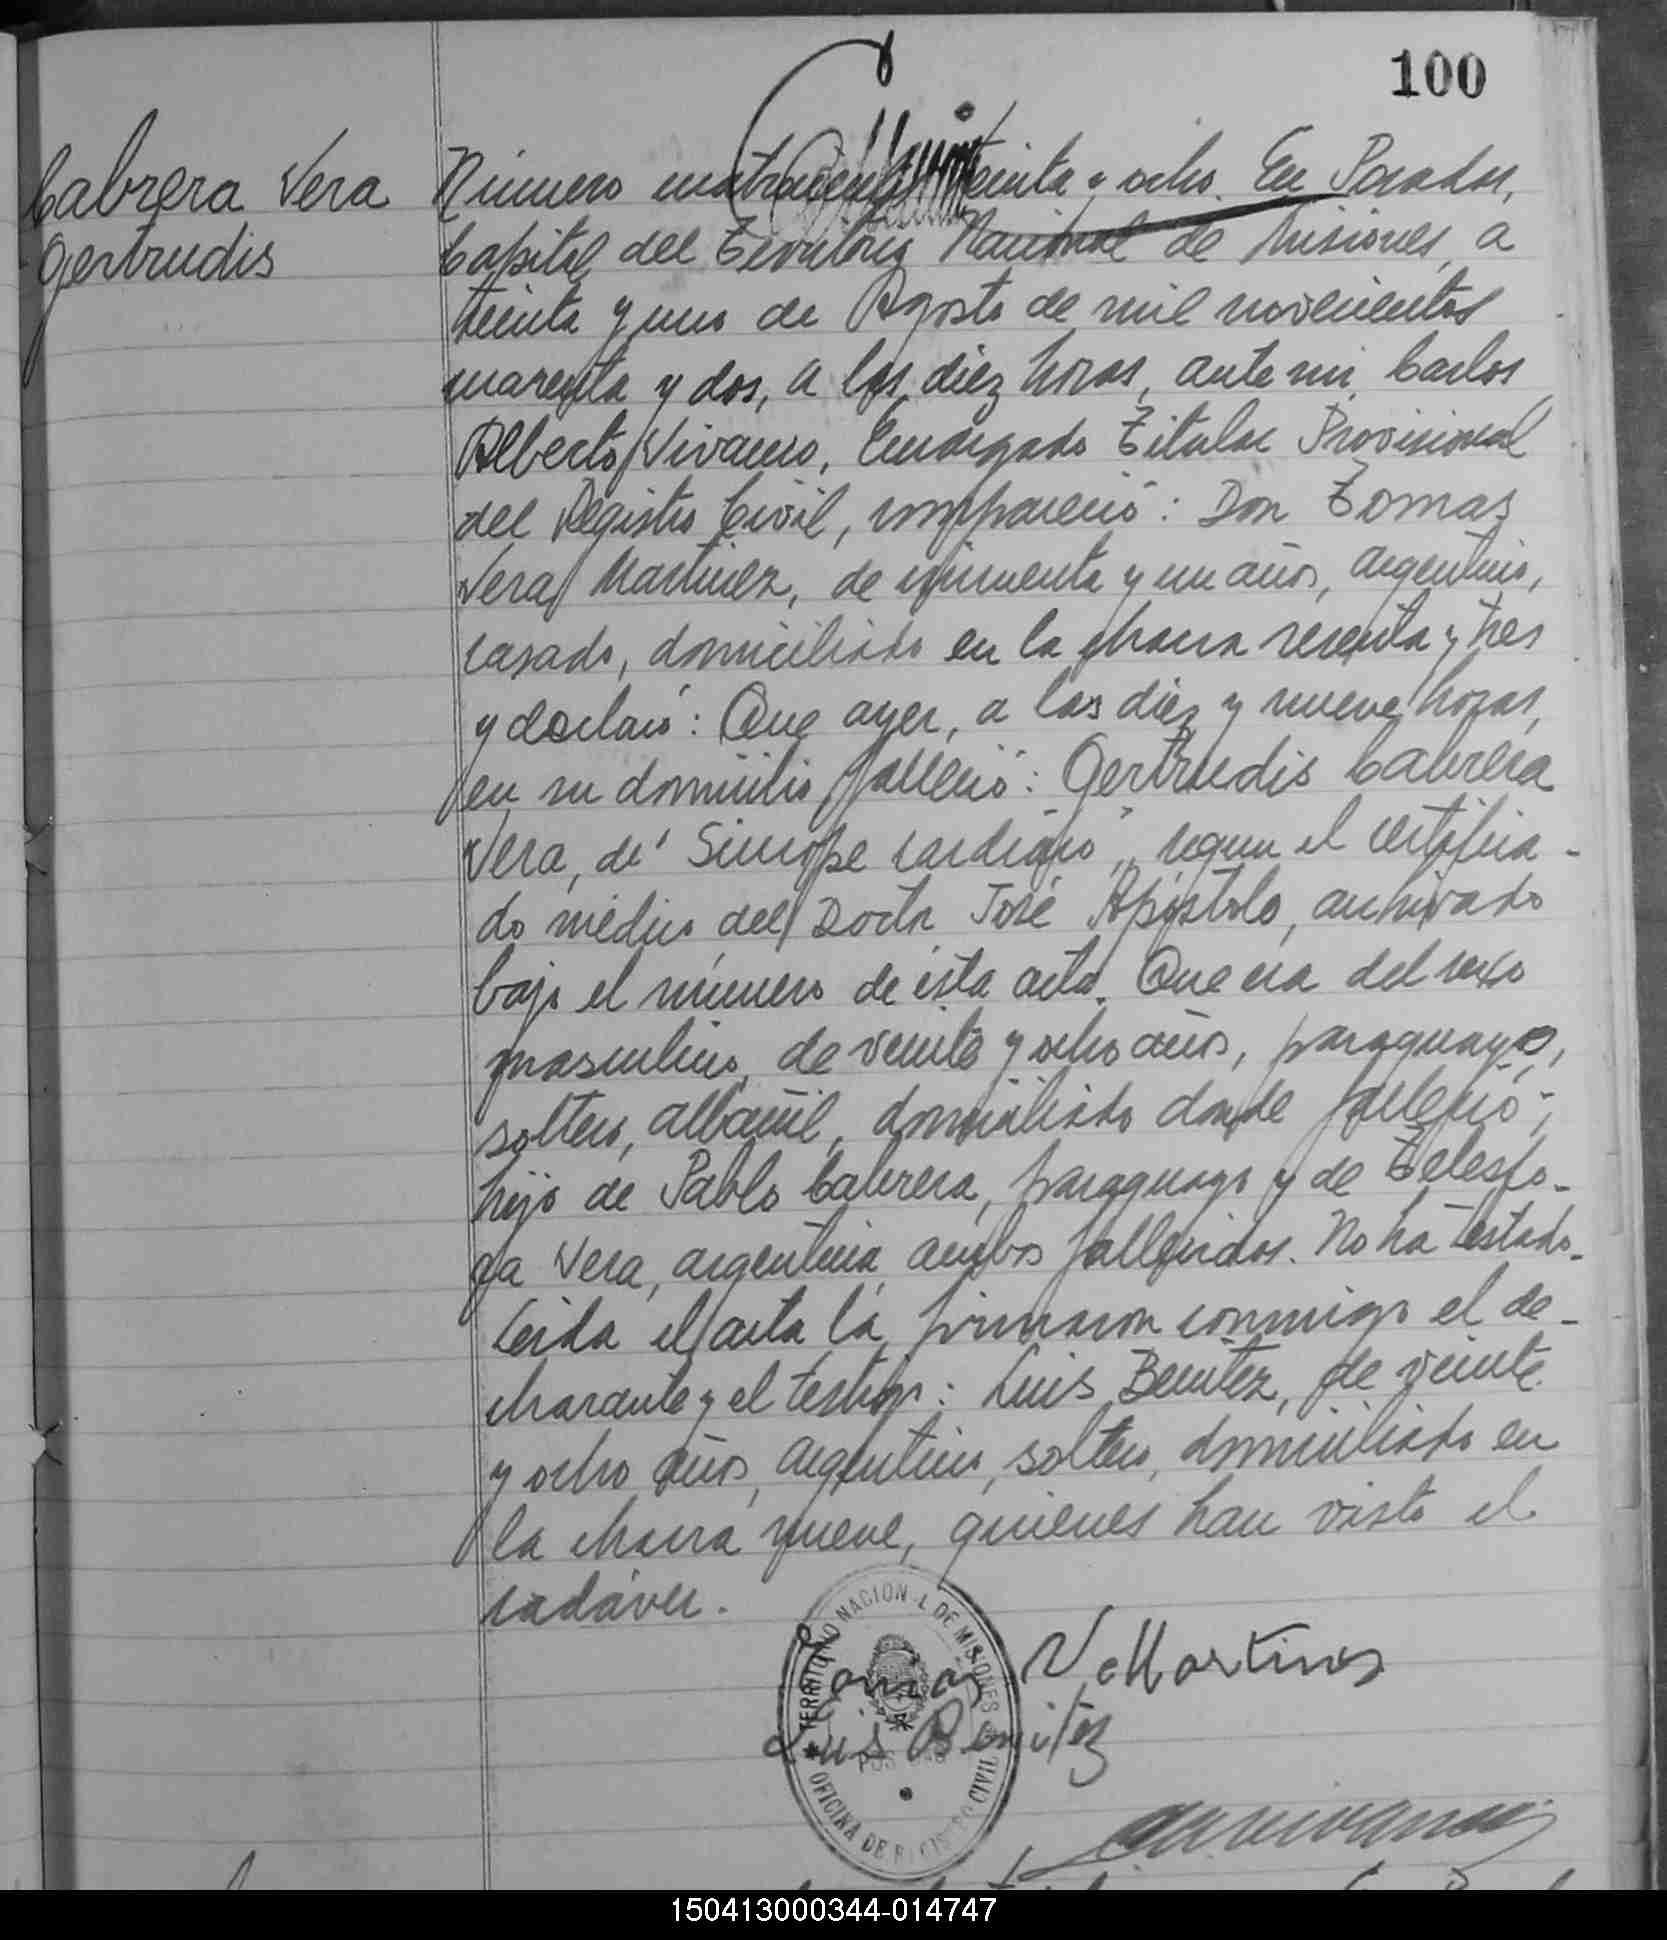 100
Cabrera Vera
Gertrudis
Número cuatrocientos treinta y ocho. En Posadas,
Capital del Territorio Nacional de Misiones, a
treinta y uno de Agosto de mil novecientos
cuarenta y dos, a las diez horas, ante mi, Carlos
Alberto Vivanco, Encargado Titular Provisional
del Registro Civil, compareció: Don Tomas
Vera Martinez, de cincuenta y un años, argentino,
casado, domiciliado en la chacra sesenta y tres
y declaró: Que ayer, a las diez y nueve horas,
en su domicilio falleció: Gertrudis Cabrera
Vera, de "Sincope cardiaco", segun el certifica-
do médico del Doctor José Apóstolo, archivado
bajo el número de esta acta. Que era del sexo
masculino, de veinte y ocho años, paraguayo,
soltero, albañil, domiciliado donde falleció;
hijo de Pablo Cabrera, paraguayo y de Telesfo-
ra Vera, argentina, ambos fallecidos. No ha testado.
Leida el acta la firmaron conmigo el de-
clarante y el testigo: Luis Benitez, de veinte
y ocho años, argentino, soltero, domiciliado en
la chacra nueve, quienes han visto el
cadáver.
TERRITORIO NACIONAL DE MISIONES
OFICINA DE REGISTRO CIVIL
POSADAS
Tomas V. Martinez
Luis Benitez
150413000344-014747